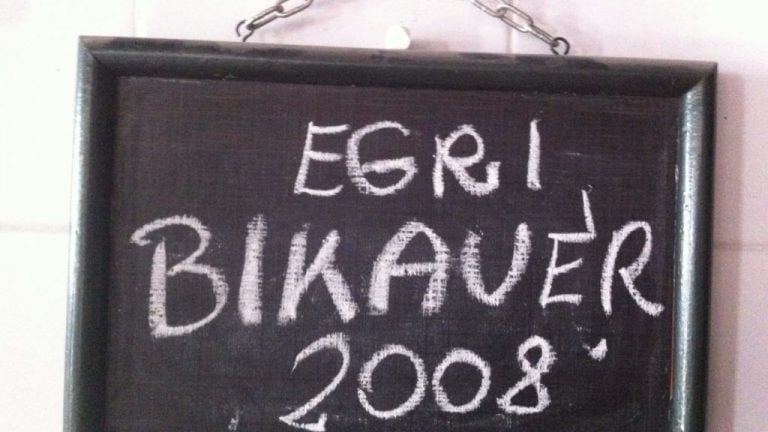 EGRI
BIKAUÉR
2008